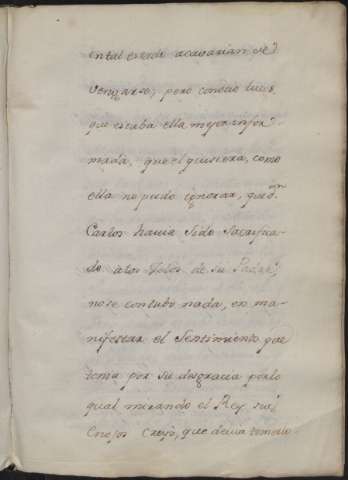 ental escrito acavarian de
vengarse; pero conocio luego
que estaba ella mejor infor-
mada, que el quisiera, como
ella no pudo ignorar, que dn
Carlos havia sido sacrifica-
do a los Zelos de su Padre,
no se contubo nada, en ma-
nifestar el Sentimiento que
tenia por su desgracia por lo
qual mirando el Rey sus
enojos creyo, que devia temerlo